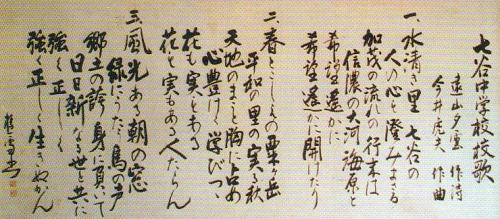 七谷中学校校歌
遠山夕雲 作詩
今井虎夫 作曲
一、水清き里 七谷の
人の心と澄みまさる
加茂の流れの行末は
信濃の大河 海原と
希望遥かに
希望遥かに開けたり
二、春とこしえの粟ヶ岳
平和の里の実る秋
天地のまこと胸に占め
心豊けく学びつゝ
花も実もある
花も実もある人たらん
三、風光ある朝の窓
緑にうたふ鳥の声
郷土の誇 身に負いて
日日新なる世と共に
強く正しく
強く正しく生きぬかん